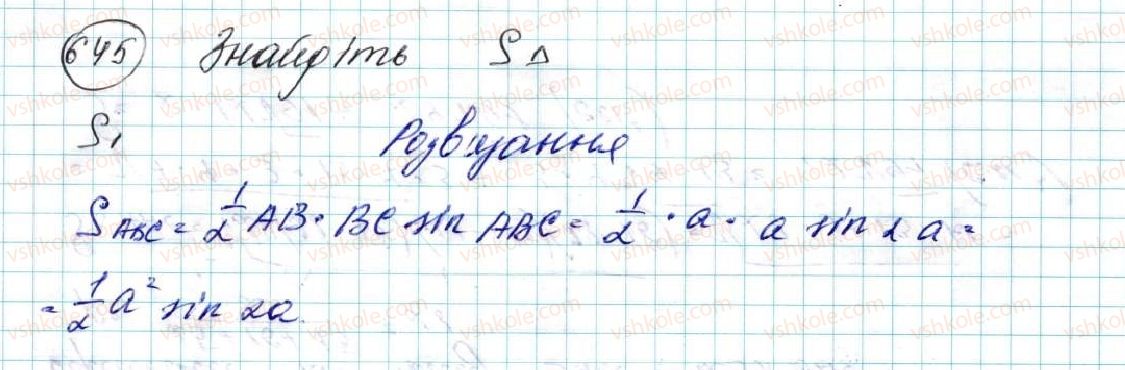 645 Знайдіть S Δ
S,
Розв'язання
S ABC = 1/2 AB · BC sin ABC = 1/2 · a · a sin 2a =
= 1/2 a² sin 2a.